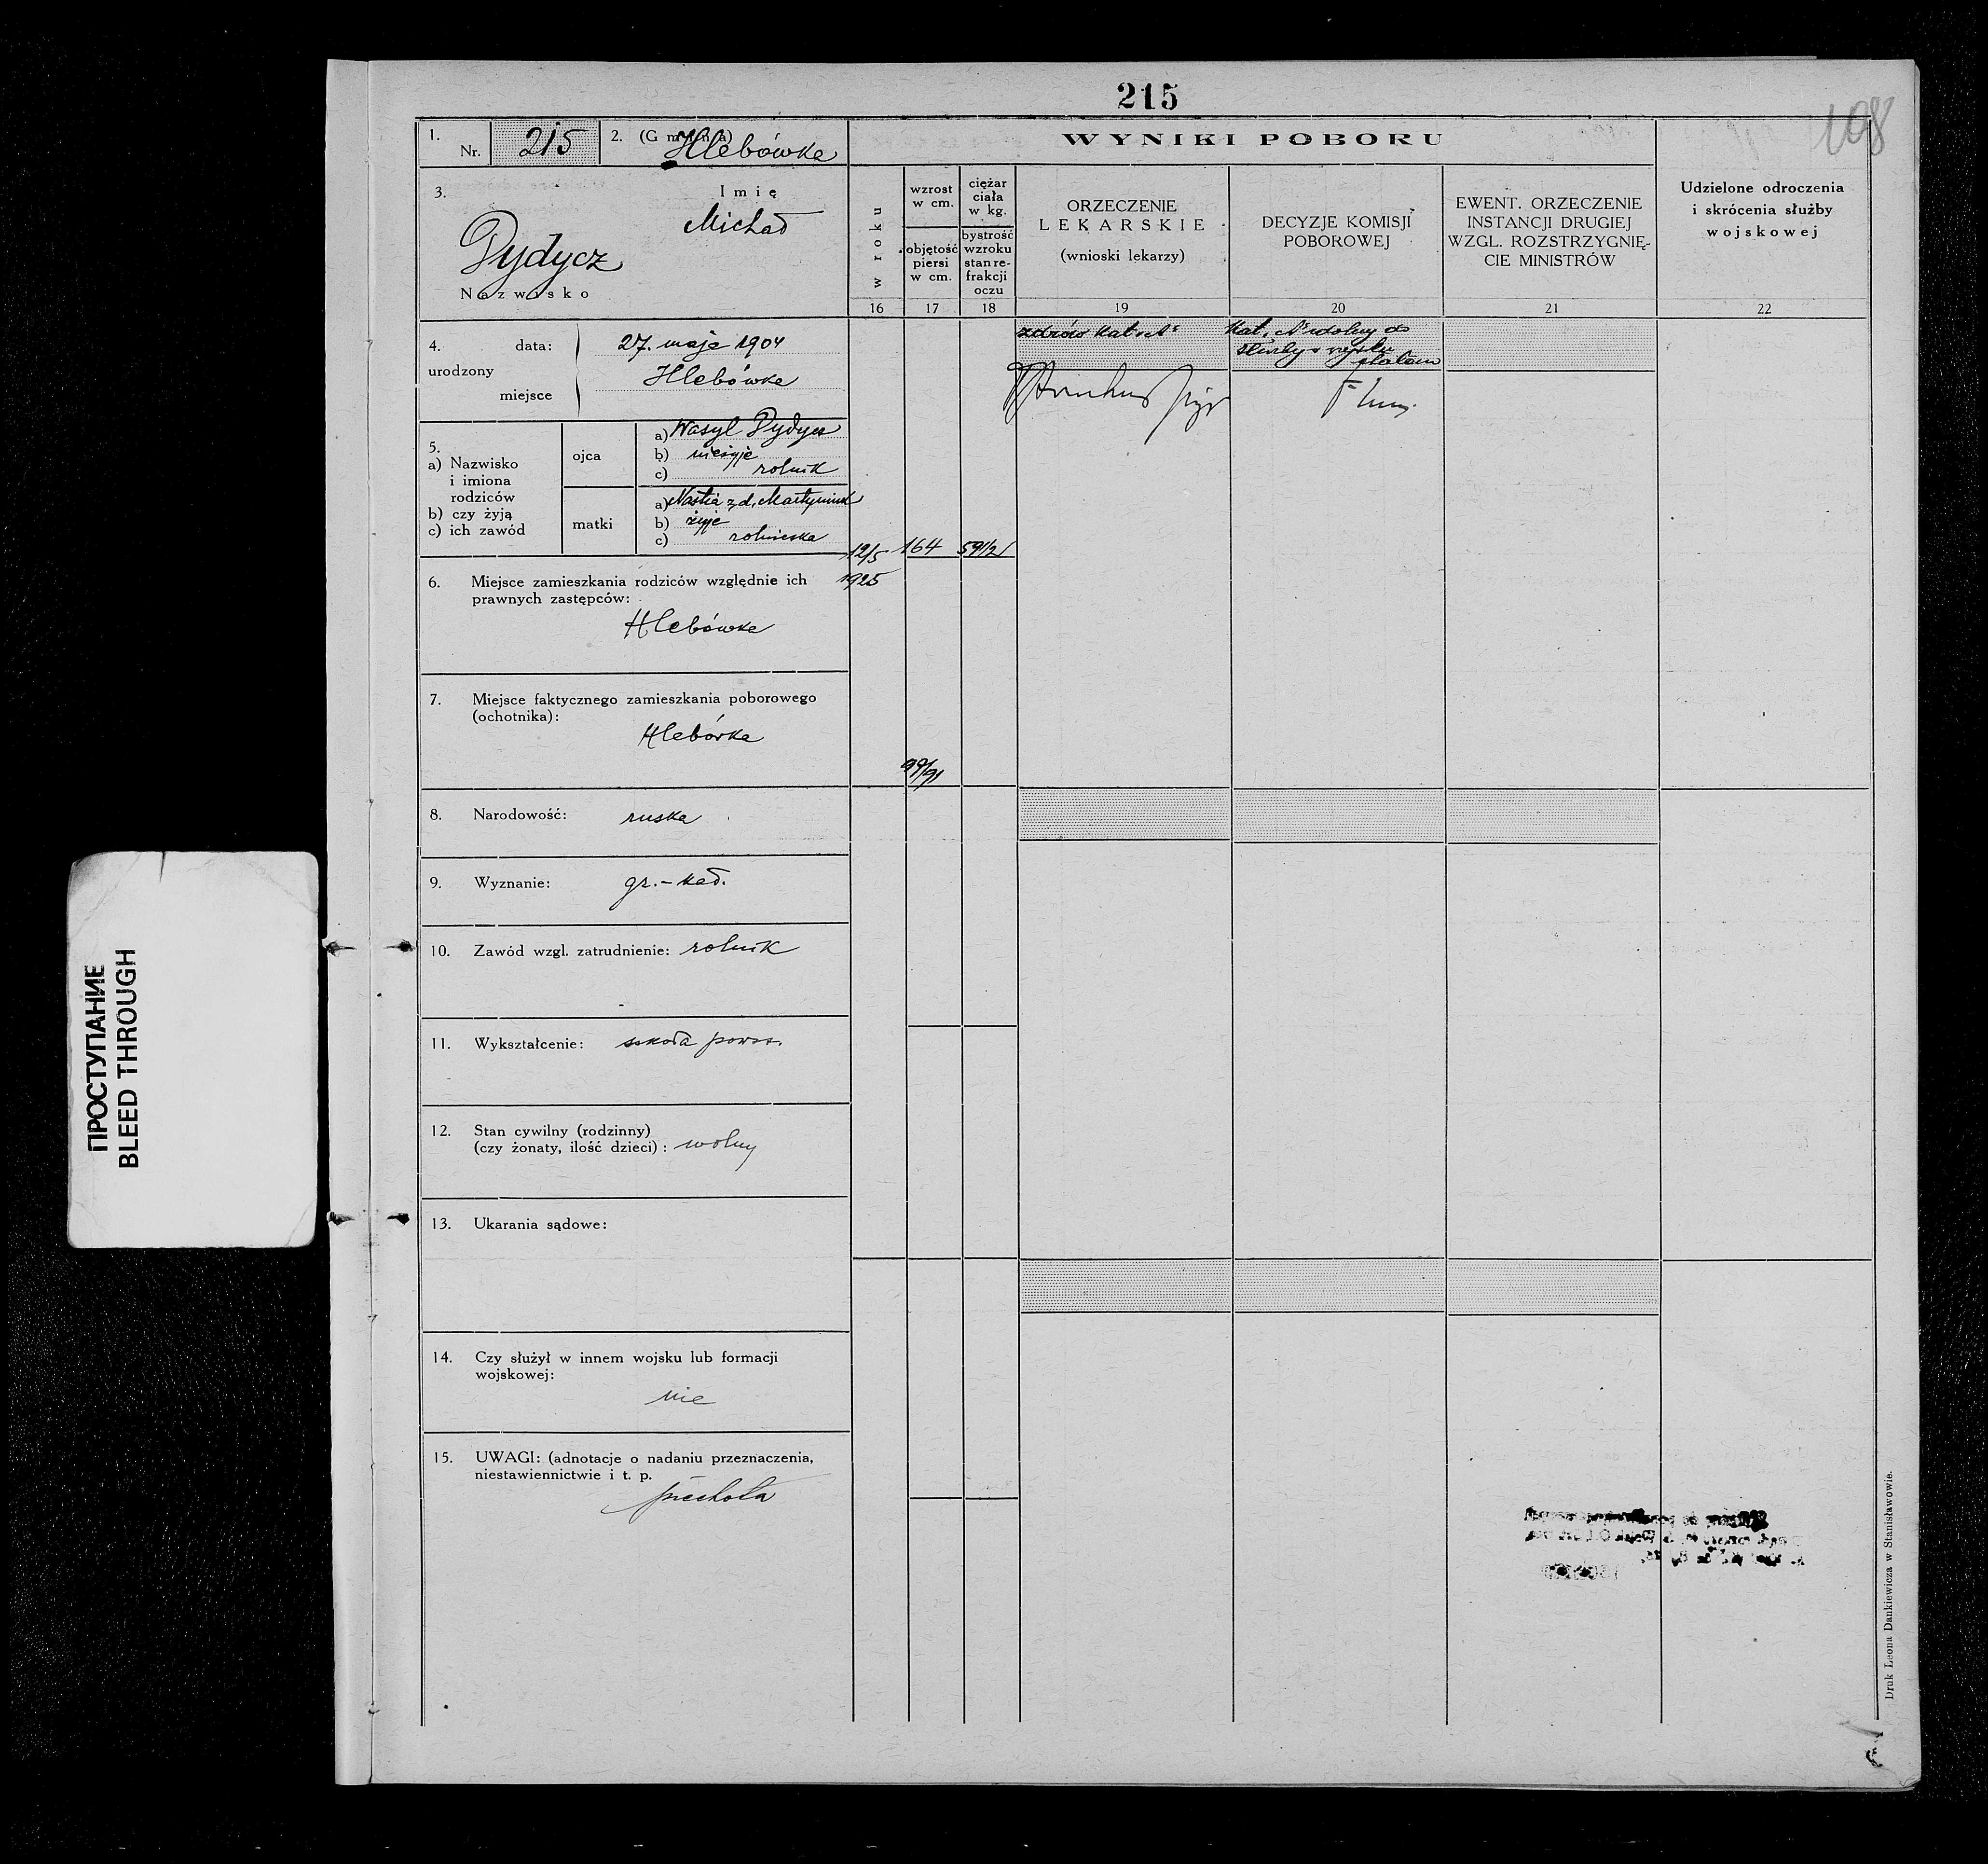 215
108
1. Nr. 215
2. (Gmina) Hlebówka
WYNIKI POBORU
3. Imię
Michał
Pydycz
Nazwisko
w roku
wzrost w cm.
objętość piersi w cm.
ciężar ciała w kg.
bystrość wzroku stan re-frakcji oczu
ORZECZENIE
LEKARSKIE
(wnioski lekarzy)
DECYZJE KOMISJI
POBOROWEJ
EWENT. ORZECZENIE
INSTANCJI DRUGIEJ
WZGL. ROZSTRZYGNIĘ-
CIE MINISTRÓW
Udzielone odroczenia
i skrócenia służby
wojskowej
16 17 18 19 20 21 22
4. urodzony
data: 27. maja 1904
miejsce Hlebówka
zdrów kat. A
Kat. A zdolny do
służby w wojsku
stałem
5.
a) Nazwisko
i imiona
rodziców
b) czy żyją
c) ich zawód
ojca
a) Wasyl Pydycz
b) nieżyje
c) rolnik
matki
a) Nastia z d. Martyniuk
b) żyje
c) rolniczka
12/5
1925
164
59 1/2
6. Miejsce zamieszkania rodziców względnie ich
prawnych zastępców:
Hlebówka
7. Miejsce faktycznego zamieszkania poborowego
(ochotnika):
Hlebówka
99/91
8. Narodowość: ruska
9. Wyznanie: gr.-kat.
10. Zawód wzgl. zatrudnienie: rolnik
11. Wykształcenie: szkoła powsz.
12. Stan cywilny (rodzinny)
(czy żonaty, ilość dzieci): wolny
13. Ukarania sądowe:
14. Czy służył w innem wojsku lub formacji
wojskowej:
nie
15. UWAGI: (adnotacje o nadaniu przeznaczenia,
niestawiennictwie i t. p.
piechota
Druk Leona Dankiewicza w Stanisławowie.
ПРОСТУПАНИЕ
BLEED THROUGH